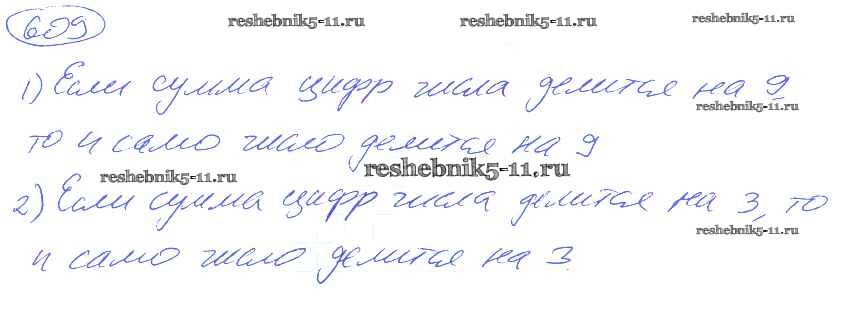 609
reshebnik5-11.ru reshebnik5-11.ru reshebnik5-11.ru
1) Если сумма цифр числа делится на 9,
reshebnik5-11.ru
то и само число делится на 9
reshebnik5-11.ru reshebnik5-11.ru
2) Если сумма цифр числа делится на 3, то
reshebnik5-11.ru
и само число делится на 3.